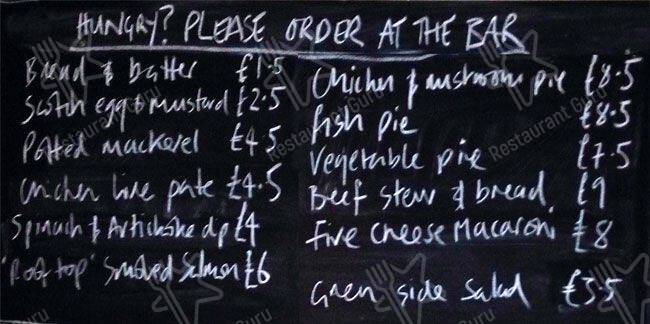 HUNGRY? PLEASE ORDER AT THE BAR
Bread & butter £1.5
Scotch egg & mustard £2.5
Potted mackerel £4.5
Chicken live pate £4.5
Spinach & Artichoke dip £4
'Roof top' Smoked Salmon £6
Chicken & mushroom pie £8.5
fish pie £8.5
Vegetable pie £7.5
Beef stew & bread £9
Five Cheese Macaroni £8
Green side salad £3.5
Restaurant Guru
Restaurant Guru
Restaurant Guru
Restaurant Guru